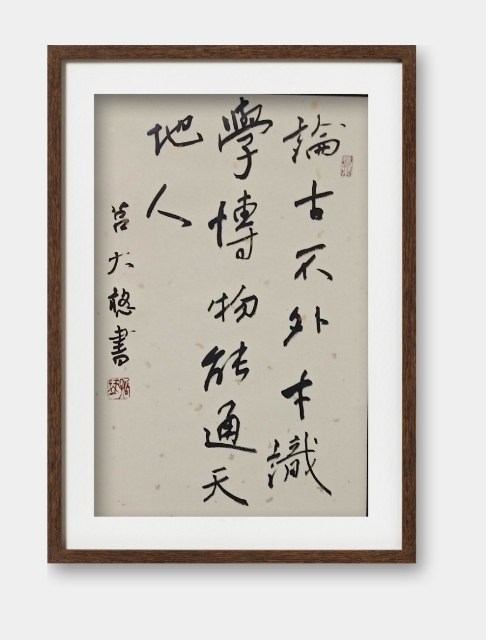 論古不外本識
學博物能通天
地人
大書